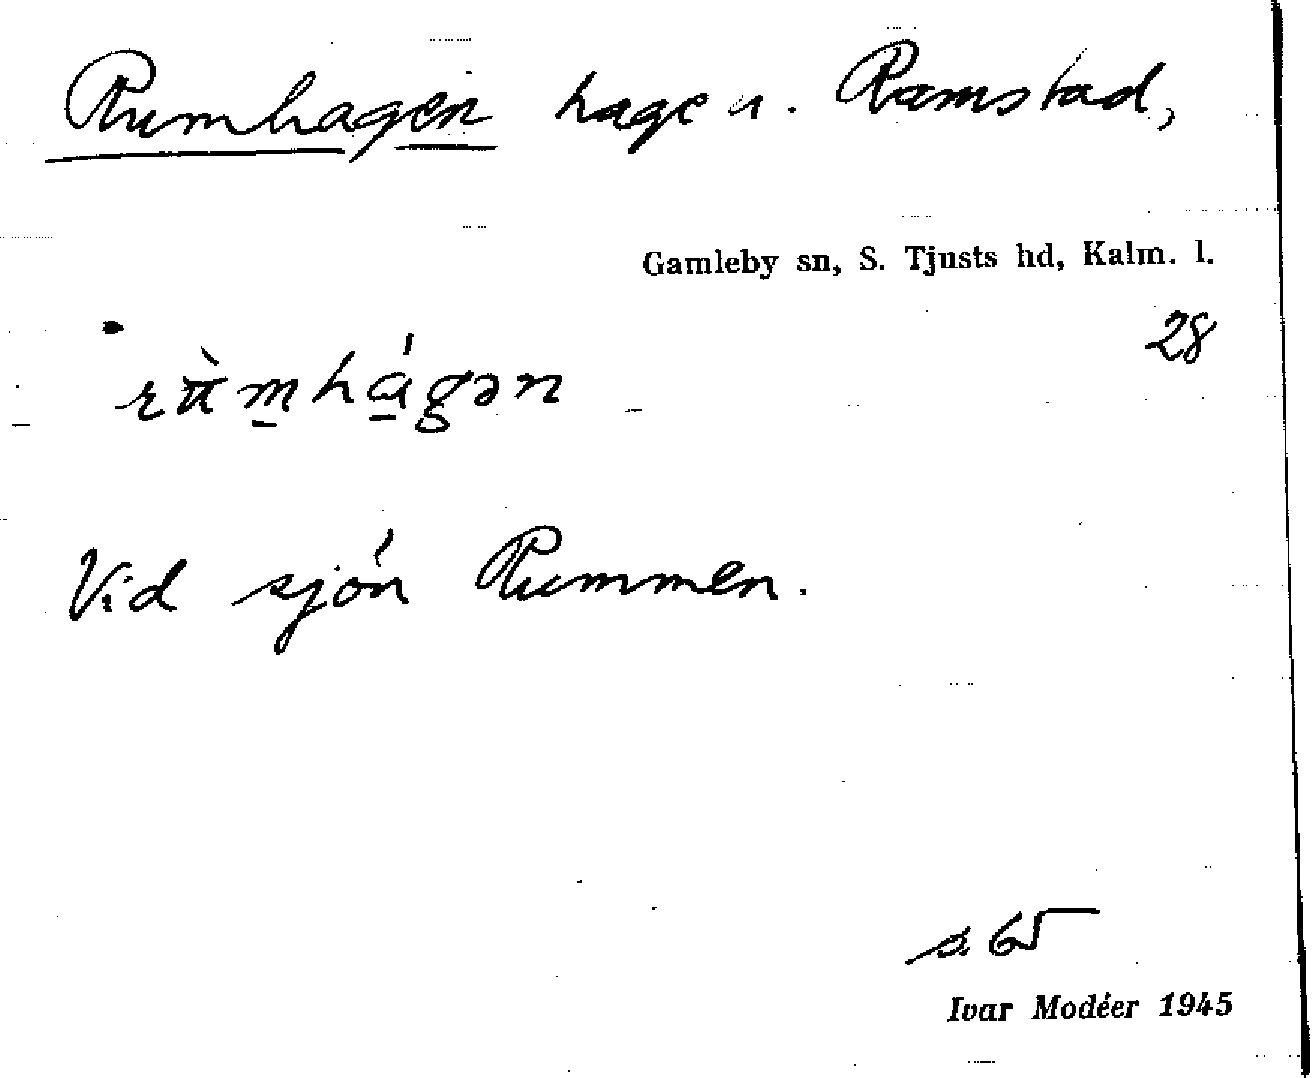 Rumhagen hage u. Ramstad,
Gamleby sn, S. Tjusts hd, Kalm. l.
28
Vid sjön Rummen.
s. 65
Ivar Modéer 1945